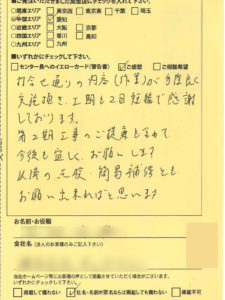 ■ご発注いただきました営業所エリアにチェックを入れて下さい。
■関東エリア □東京 □東京東 □千葉 □埼玉
■中部エリア ☑愛知
■近畿エリア □大阪 □京都
■四国エリア □香川 □高知
■九州エリア □九州
■いずれかにチェックして下さい。
□センター長へのイエローカード(警告書) ☑ご感想 □ご相談希望
打合せ通りの内容(作業)が手際良く
実施頂き、工期も2日短縮で感謝
しております。
第2期工事のご提案も含めて
今後も宜しくお願いします
以後の点検・簡易補修とも、
お願い出来ればと思います
お名前・お役職
会社名 (法人のお客様のみご記入下さい)
当社ホームページ等にお客様の声として掲載させていただく場合がございます。
いずれかにチェックをして下さい。
□掲載して構わない ☑社名・名前が匿名ならば掲載しても構わない □掲載不可